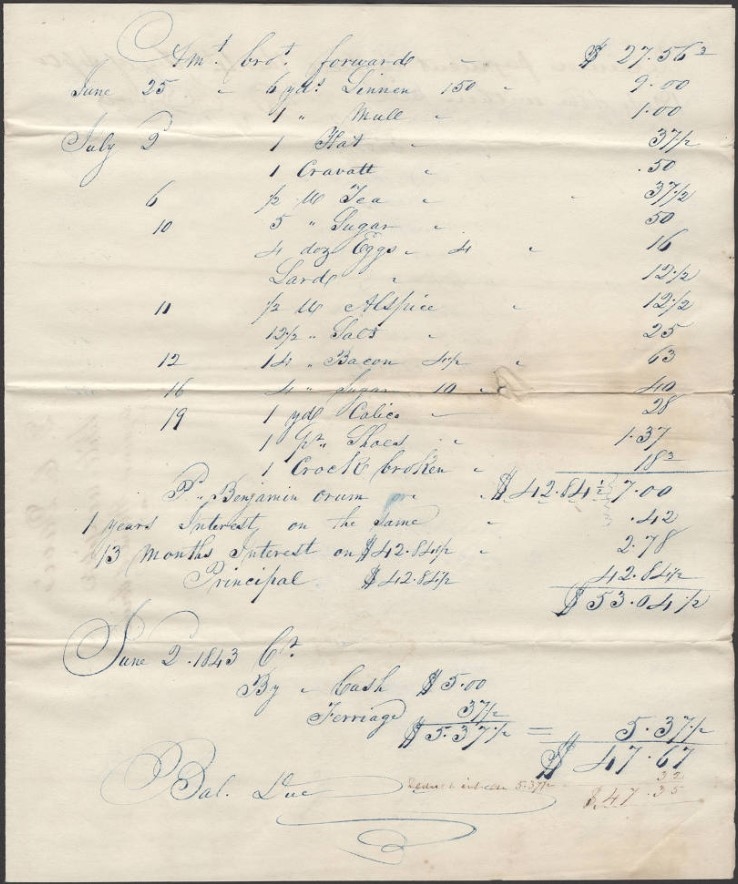 Amt brot forward " $ 27.56 3
June 25 " 6 yds Linnen 150 " 9.00
1 " Mull " 1.00
July 2 1 Hat " 37 1/2
1 Cravatt " .50
6 1/2 lb Tea " " 37 1/2
10 5 " Sugar " 50
4 doz Eggs " 4 " 16
Lard " 12 1/2
11 1/2 lb Alspice " 12 1/2
12 1/2 " Salt " 25
12 14 " Bacon 4 1/2 " 63
16 4 " Sugar 10 " 40
19 1 yd Calico " 28
1 pr Shoes " 1.37
1 Crock broken " 18 3
Pr Benjamin Orum " $42.84 1/2 7.00
1 years Interest, on the same " .42
13 Months Interest on $42.84 1/2 " 2.78
Principal $42.84 1/2 42.84 1/2
$53.04 1/2
June 2. 1843 Cr
By " Cash $5.00
Ferriage 37 1/2
$5.37 1/2 = 5.37 1/2
$ 47.67
5.37 1/2 32
Bal. Due $47.35